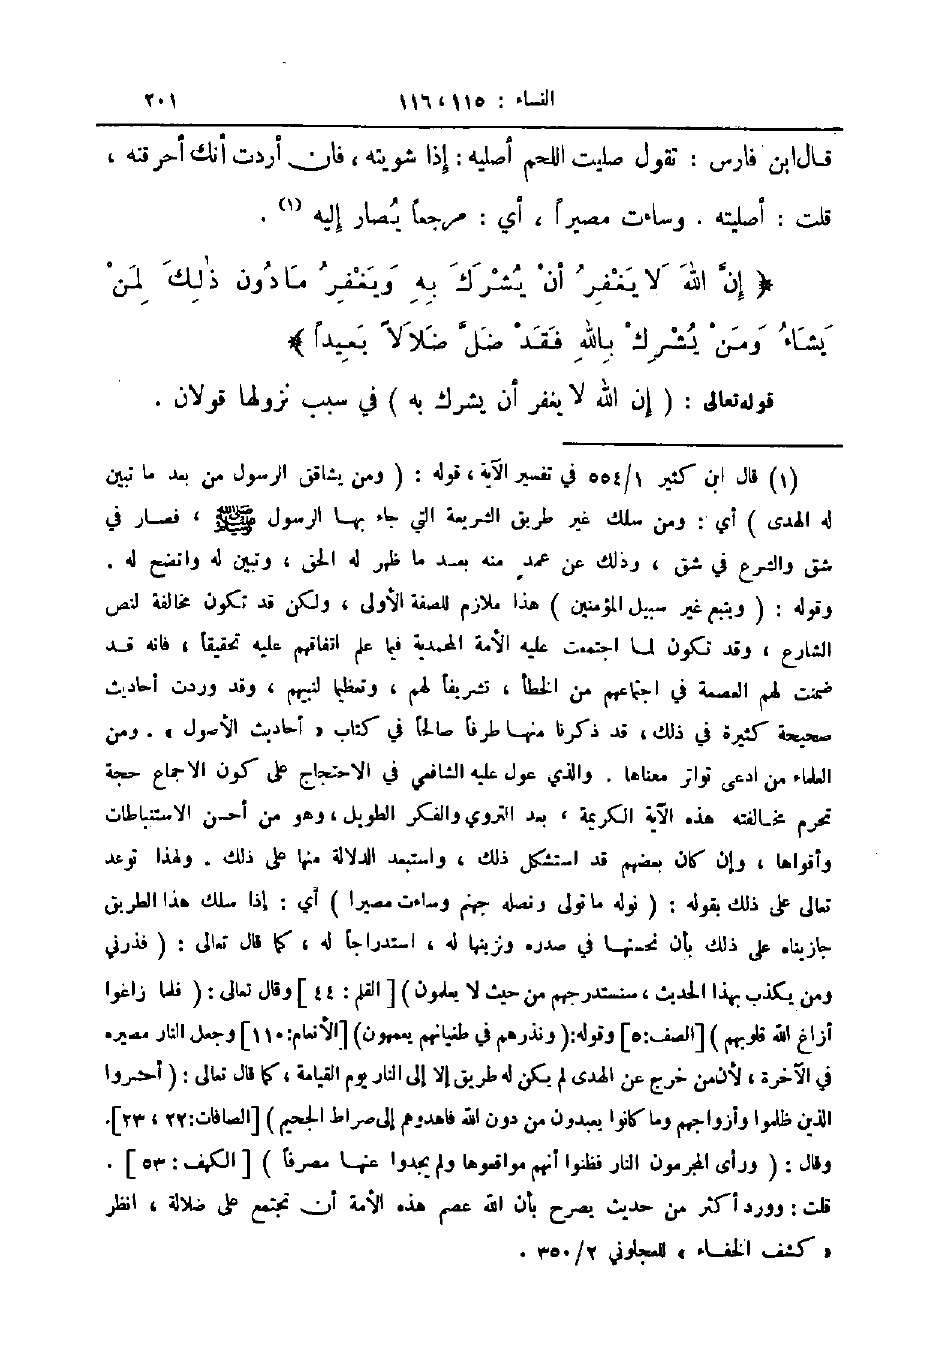 النساء : ١١٥ ، ١١٦ ٢٠١
قال ابن فارس : تقول صليت اللحم أصليه : إذا شويته ، فان أردت أنك أحرقته ،
قلت : أصليته . وساءت مصيراً ، أي : مرجعاً يُصار إليه (١) .
﴿ إِنَّ اللهَ لَا يَغْفِرُ أَنْ يُشْرَكَ بِهِ وَيَغْفِرُ مَا دُونَ ذٰلِكَ لِمَنْ
يَشَاءُ وَمَنْ يُشْرِكْ بِاللهِ فَقَدْ ضَلَّ ضَلَالاً بَعِيداً ﴾
قوله تعالى : ( إن الله لا يغفر أن يشرك به ) في سبب نزولها قولان .
(١) قال ابن كثير ٥٥٤/١ في تفسير الآية ، قوله : ( ومن يشاقق الرسول من بعد ما تبين
له الهدى ) أي : ومن سلك غير طريق الشريعة التي جاء بها الرسول ﷺ ، فصار في
شق والشرع في شق ، وذلك عن عمدٍ منه بعد ما ظهر له الحق ، وتبين له واتضح له .
وقوله : ( ويتبع غير سبيل المؤمنين ) هذا ملازم للصفة الأولى ، ولكن قد تكون مخالفة لنص
الشارع ، وقد تكون لما اجتمعت عليه الأمة المحمدية فيما علم اتفاقهم عليه تحقيقاً ، فانه قد
ضمنت لهم العصمة في اجتماعهم من الخطأ ، تشريفاً لهم ، وتعظيما لنبيهم ، وقد وردت أحاديث
صحيحة كثيرة في ذلك ، قد ذكرنا منها طرفاً صالحاً في كتاب « أحاديث الأصول » . ومن
العلماء من ادعى تواتر معناها . والذي عول عليه الشافعي في الاحتجاج على كون الاجماع حجة
تحرم مخالفته هذه الآية الكريمة ، بعد التروي والفكر الطويل ، وهو من أحسن الاستنباطات
وأقواها ، وإن كان بعضهم قد استشكل ذلك ، واستبعد الدلالة منها على ذلك . ولهذا توعد
تعالى على ذلك بقوله : ( نوله ما تولى ونصله جهنم وساءت مصيرا ) أي : إذا سلك هذا الطريق
جازيناه على ذلك بأن نحسنها في صدره ونزينها له ، استدراجاً له ، كما قال تعالى : ( فذرني
ومن يكذب بهذا الحديث ، سنستدرجهم من حيث لا يعلمون ) [ القلم : ٤٤ ] وقال تعالى : ( فلما زاغوا
أزاغ الله قلوبهم ) [الصف:٥] وقوله:( ونذرهم في طغيانهم يعمهون) [الأنعام:١١٠] وجعل النار مصيره
في الآخرة ، لأن من خرج عن الهدى لم يكن له طريق إلا إلى النار يوم القيامة ، كما قال تعالى : ( أحشروا
الذين ظلموا وأزواجهم وما كانوا يعبدون من دون الله فاهدوهم إلى صراط الجحيم ) [الصافات:٢٢ ، ٢٣].
وقال : ( ورأى المجرمون النار فظنوا أنهم مواقعوها ولم يجدوا عنها مصرفاً ) [ الكهف : ٥٣ ] .
قلت : وورد أكثر من حديث يصرح بأن الله عصم هذه الأمة أن تجتمع على ضلالة ، انظر
« كشف الخفاء » للعجلوني ٣٥٠/٢ .